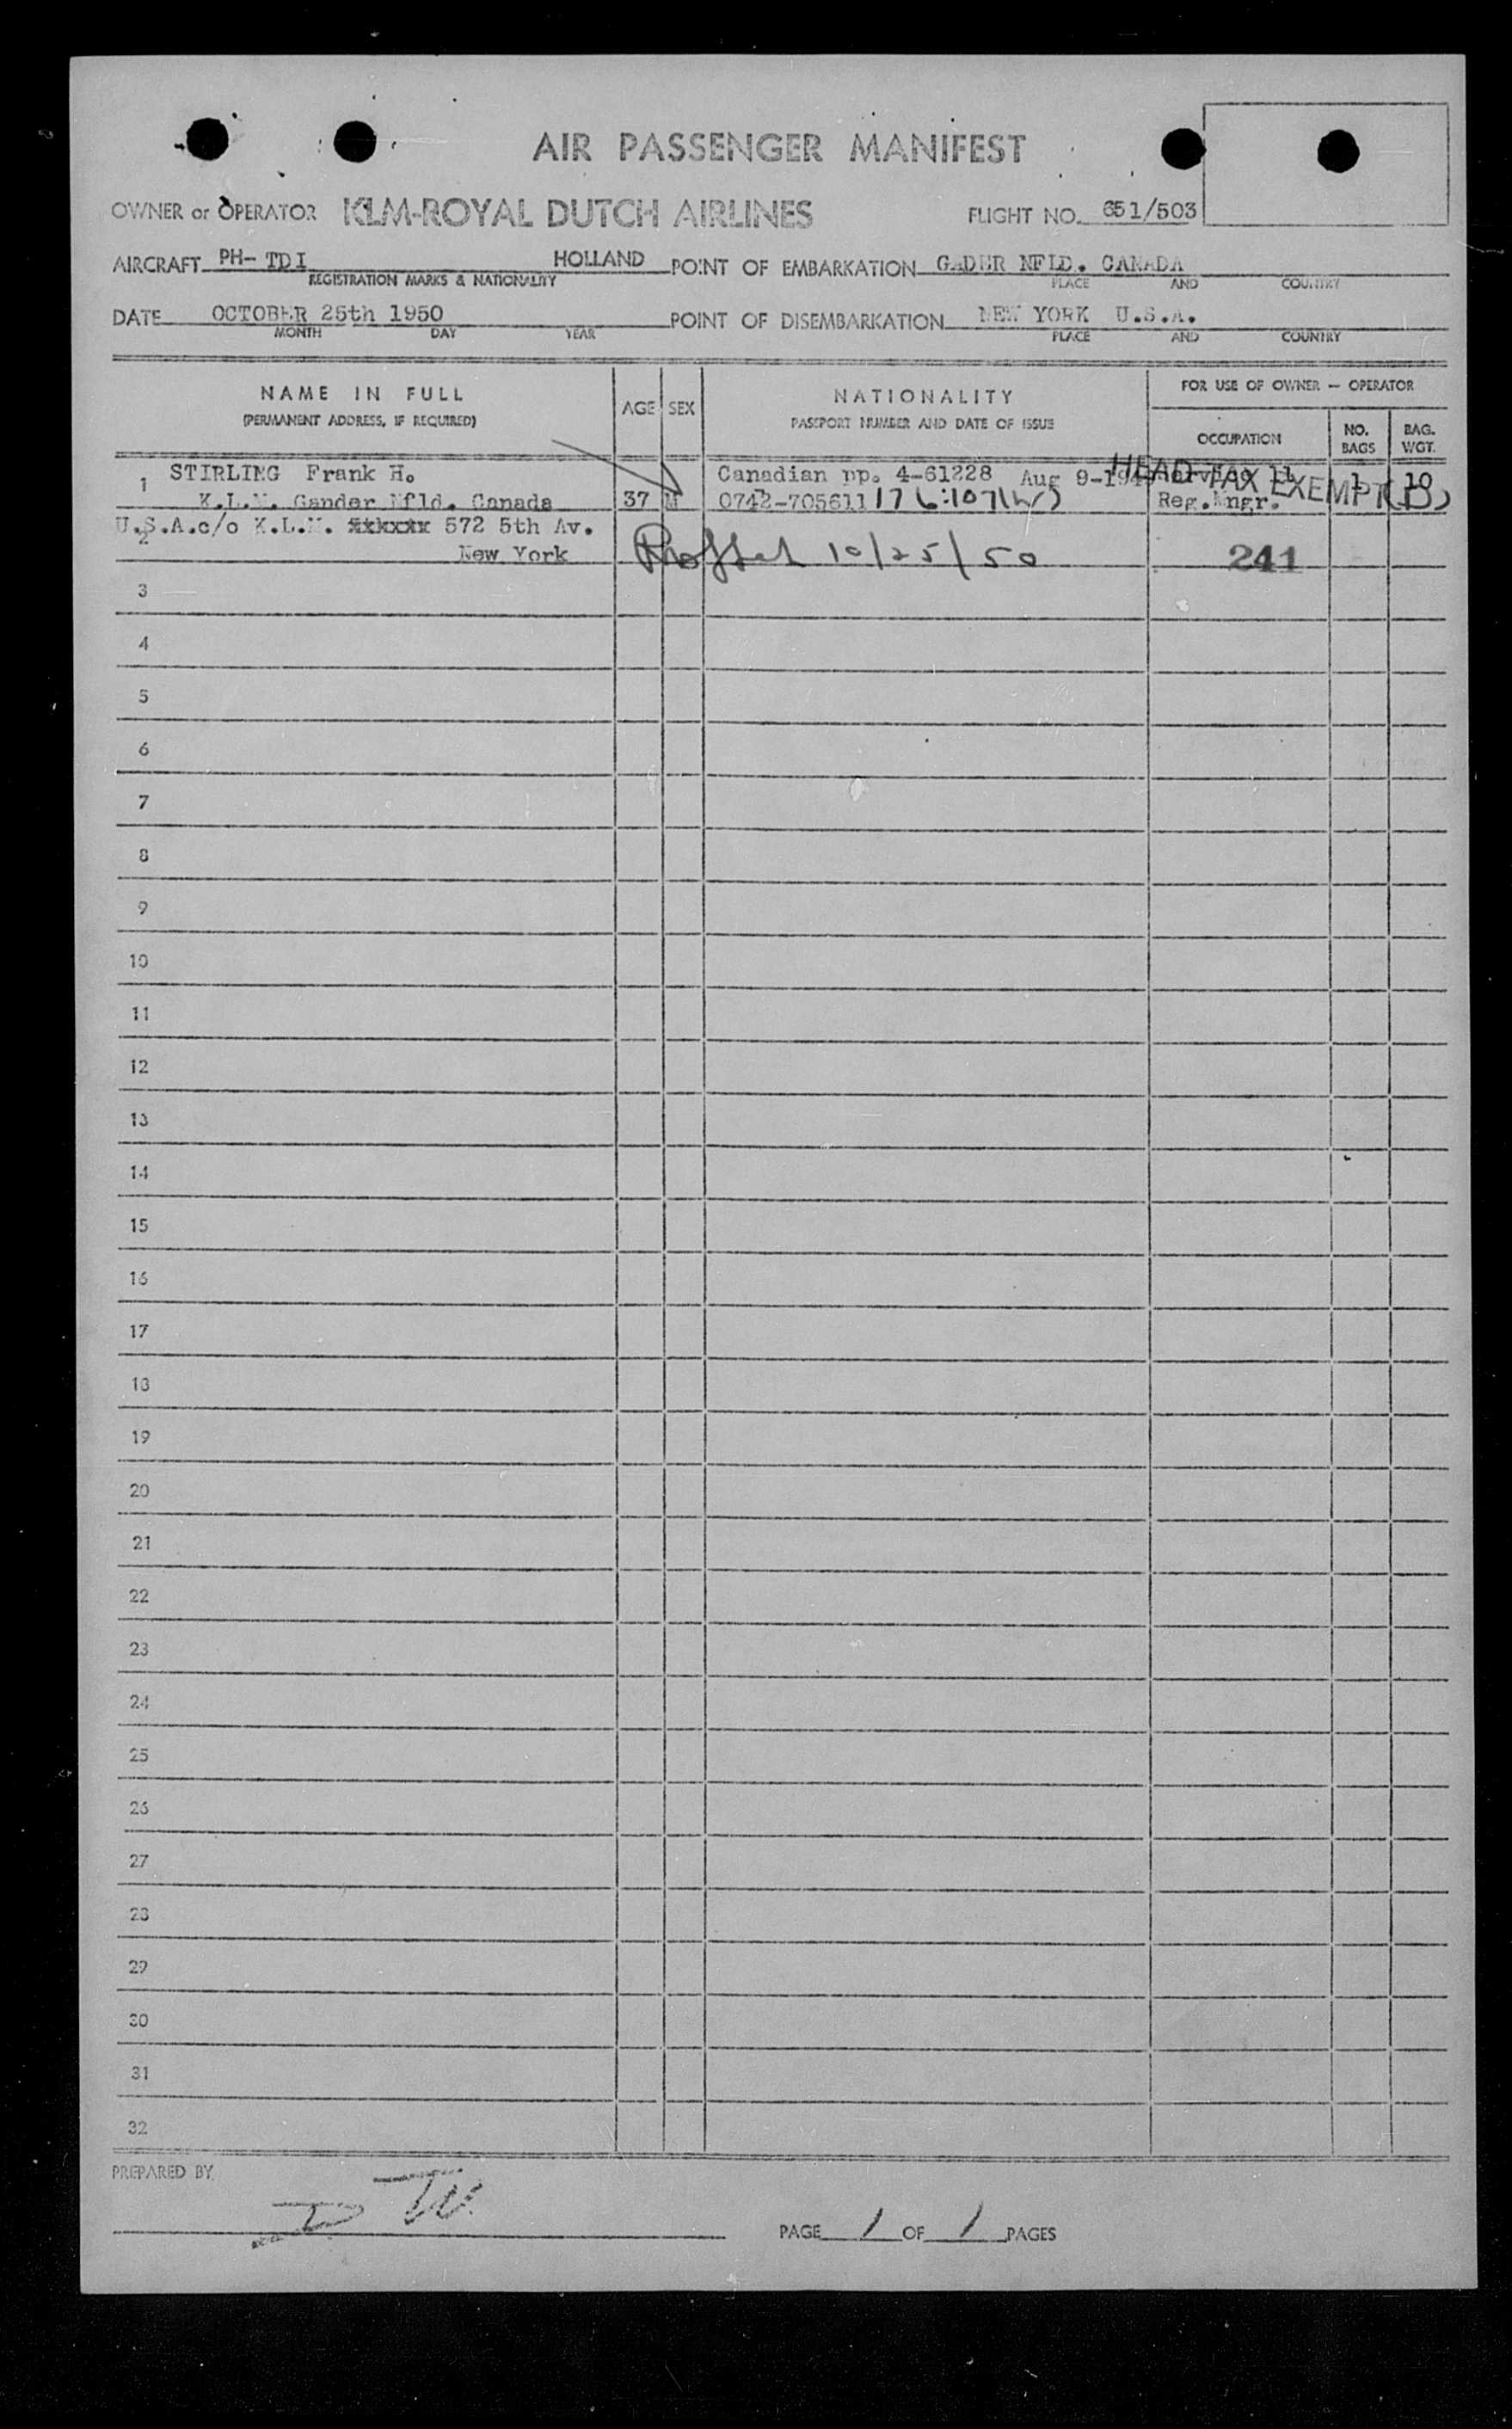 AIR PASSENGER MANIFEST
OWNER or OPERATOR KLM-ROYAL DUTCH AIRLINES FLIGHT NO. 651/503
AIRCRAFT PH- TDI HOLLAND POINT OF EMBARKATION GADER NFLD. CANADA
REGISTRATION MARKS & NATIONALITY PLACE AND COUNTRY
DATE OCTOBER 25th 1950 POINT OF DISEMBARKATION NEW YORK U.S.A.
MONTH DAY YEAR PLACE AND COUNTRY
NAME IN FULL
(PERMANENT ADDRESS, IF REQUIRED)
AGE SEX
NATIONALITY
PASSPORT NUMBER AND DATE OF ISSUE
FOR USE OF OWNER — OPERATOR
OCCUPATION NO. BAGS BAG. WGT.
HEAD TAX EXEMPT
1 STIRLING Frank H. Canadian pp. 4-61228 Aug 9-194 1 10
K.L.M. Gander Nfld. Canada 37 M 0742-705611 Reg.Mngr.
2 U.S.A.c/o K.L.M. 572 5th Av.
New York 10/25/50 241
3
4
5
6
7
8
9
10
11
12
13
14
15
16
17
18
19
20
21
22
23
24
25
26
27
28
29
30
31
32
PREPARED BY
PAGE 1 OF 1 PAGES